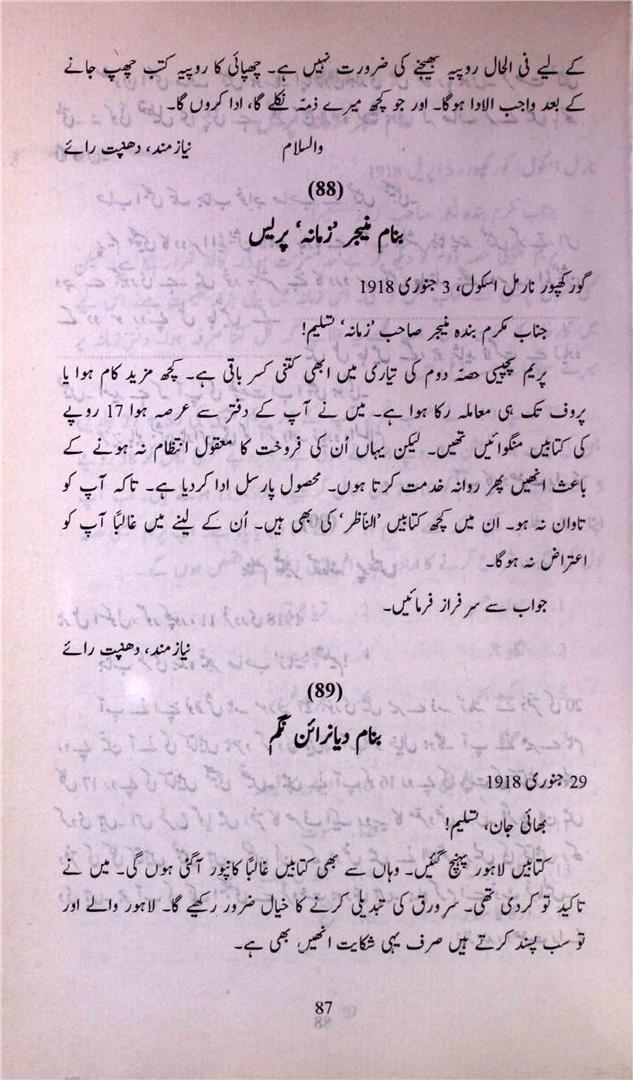 کے لیے فی الحال روپیہ بھیجنے کی ضرورت نہیں ہے۔ چھپائی کا روپیہ کتب چھپ جانے
کے بعد واجب الادا ہوگا۔ اور جو کچھ میرے ذمّہ نکلے گا، ادا کروں گا۔
والسلام نیازمند، دھنپت رائے
(88)
بنام منیجر ’زمانہ‘ پریس
گورکھپور نارمل اسکول، 3 جنوری 1918
جناب مکرم بندہ منیجر صاحب ’زمانہ‘ تسلیم!
پریم پچیسی حصّہ دوم کی تیاری میں ابھی کتنی کسر باقی ہے۔ کچھ مزید کام ہوا یا
پروف تک ہی معاملہ رکا ہوا ہے۔ میں نے آپ کے دفتر سے عرصہ ہوا 17 روپے
کی کتابیں منگوائیں تھیں۔ لیکن یہاں اُن کی فروخت کا معقول انتظام نہ ہونے کے
باعث انھیں پھر روانہ خدمت کرتا ہوں۔ محصول پارسل ادا کردیا ہے۔ تاکہ آپ کو
تاوان نہ ہو۔ ان میں کچھ کتابیں ’الناظر‘ کی بھی ہیں۔ اُن کے لینے میں غالباً آپ کو
اعتراض نہ ہوگا۔
جواب سے سرفراز فرمائیں۔
نیازمند، دھنپت رائے
(89)
بنام دیانرائن نگم
29 جنوری 1918
بھائی جان، تسلیم!
کتابیں لاہور پہنچ گئیں۔ وہاں سے بھی کتابیں غالباً کانپور آگئی ہوں گی۔ میں نے
تاکید تو کردی تھی۔ سرورق کی تبدیلی کرنے کا خیال ضرور رکھیے گا۔ لاہور والے اور
تو سب پسند کرتے ہیں صرف یہی شکایت انھیں بھی ہے۔
87